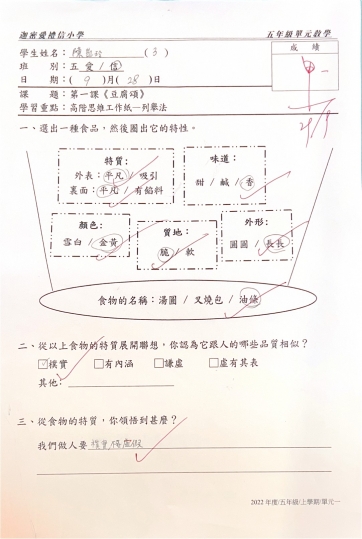 迦密愛禮信小學 五年級單元教學
學生姓名： 陳 (3) 成績
班 別：五 愛 / 信
日 期：( 9 )月( 28 )日
課 題：第一課《豆腐頌》
學習重點：高階思維工作紙—列舉法 29/9
一、選出一種食品，然後圈出它的特性。
特質：
外表：平凡 / 吸引
裏面：平凡 / 有餡料
味道：
甜 / 鹹 / 香
顏色：
雪白 / 金黃
質地：
脆 / 軟
外形：
圓圓 / 長長
食物的名稱：湯圓 / 叉燒包 / 油條
二、從以上食物的特質展開聯想，你認為它跟人的哪些品質相似？
☑樸實 □有內涵 □謙虛 □虛有其表
其他：
三、從食物的特質，你領悟到甚麼？
我們做人要
2022 年度/五年級/上學期/單元一